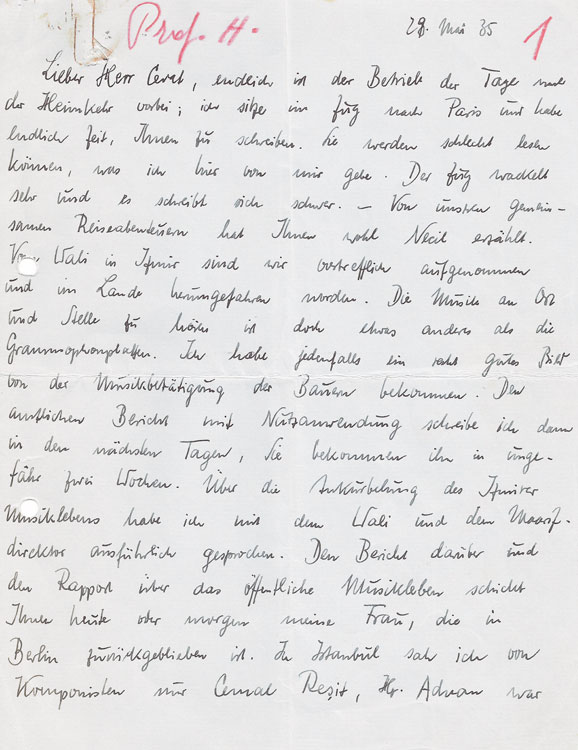 Prof. H.
28. Mai 35
1
Lieber Herr Cevat, endlich ist der Betrieb der Tage nach
der Heimkehr vorbei; ich sitze im Zug nach Paris und habe
endlich Zeit, Ihnen zu schreiben. Sie werden schlecht lesen
können, was ich hier von mir gebe. Der Zug wackelt
sehr und es schreibt sich schwer. — Von unsren gemein-
samen Reiseabenteuern hat Ihnen wohl Necil erzählt.
Vom Wali in Izmir sind wir vortrefflich aufgenommen
und im Lande herumgefahren worden. Die Musik an Ort
und Stelle zu hören ist doch etwas anders als die
Grammophonplatten. Ich habe jedenfalls ein recht gutes Bild
von der Musikbetätigung der Bauern bekommen. Den
amtlichen Bericht mit Nutzanwendung schreibe ich dann
in den nächsten Tagen, Sie bekommen ihn in unge-
fähr zwei Wochen. Über die Ankurbelung des Izmirer
Musiklebens habe ich mit dem Wali und dem Maarif-
direktor ausführlich gesprochen. Den Bericht darüber und
den Rapport über das öffentliche Musikleben schickt
Ihnen heute oder morgen meine Frau, die in
Berlin zurückgeblieben ist. In Istanbul sah ich von
Komponisten nur Cemal Reşit, Hr. Adnan war